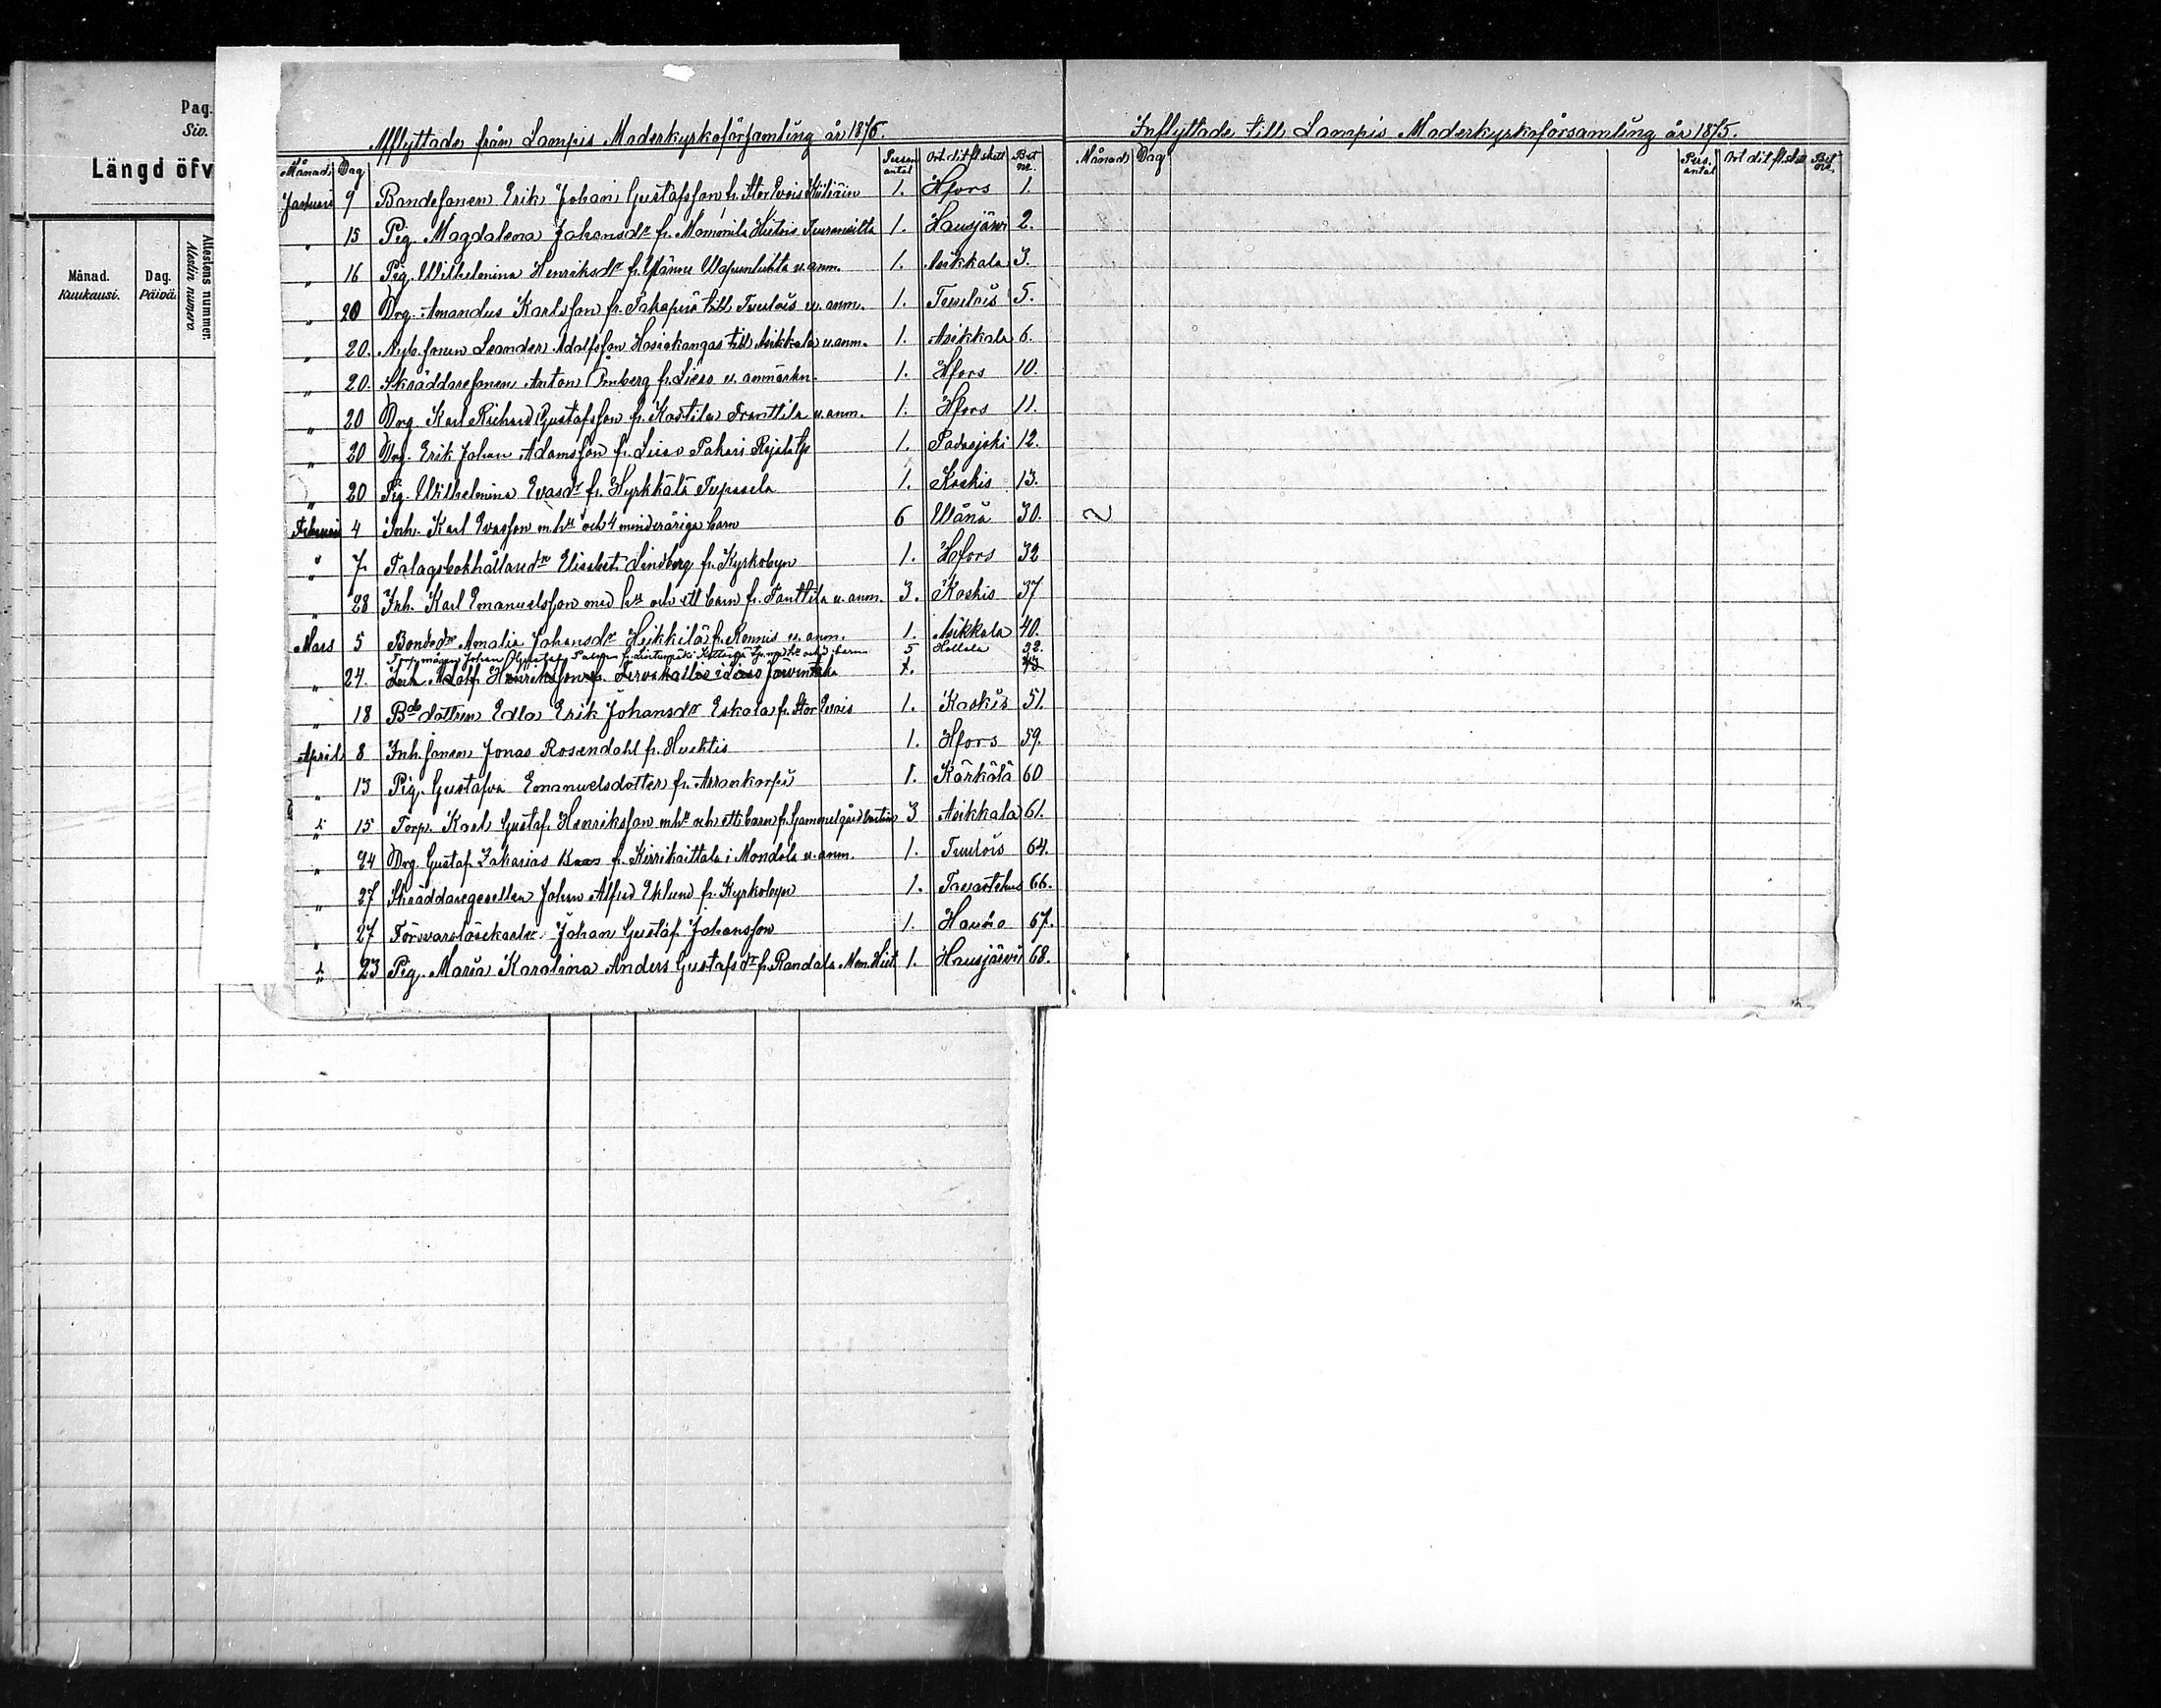 Pag.
Siv.
Längd öfv
Månad.
Kuukausi.
Dag.
Päivä.
Attestens nummer.
Alestin numero.
Afflyttade från Lampis Moderkyrkoförsamling år 1876.
Månad Dag Person antal Ort dit flskett Bet nr.
Januari 9 Bondesonen Erik Johan Gustafsson fr. Stor Evois Kiiliäin 1. Hfors 1.
" 15 Pig. Magdalena Johansdr fr. Mommila Hietois 1. Hausjärvi 2.
" 16 Pig. Wilhelmina Henriksdr fr. u. anm. 1. Asikkala 3.
" 20 Drg. Amandus Karlsson fr. till Tuulois u. anm. 1. Tuulois 5.
" 20. Nyb. sonen Leander Adolfsson Hasiakangas till Asikkala u. anm. 1. Asikkala 6.
" 20. Skräddaresonen Anton fr. Lieso u. anmärkn. 1. Hfors 10.
" 20 Drg. Karl Richard Gustafsson fr. Kostila Franttila u. anm. 1. Hfors 11.
" 20 Drg. Erik Johan Adamsson fr. Lieso Pakari 1. Padasjoki 12.
" 20 Pig. Wilhelmina Evasdr fr. Hyrkkälä Tupasela 1. Koskis 13.
Februari 4 Inh. Karl Evasson m. hu och 4 minderåriga barn 6 Wånå 30.
" 7. Elisabet Lindberg fr. Kyrkobyn 1. Hfors 32
" 28 Inh. Karl Emanuelsson med hu och ett barn fr. Tanttila u. anm. 3. Koskis 37
Mars 5 Bondedr Amalia Johansdr Heikkilä fr. Ronnis u. anm. 1. Asikkala 40.
Johan Gustaf 5 Hollola 22.
" 24. Adolf Henriksson Lieso 1. 43
" 18 Bde dottren Edla Erik Johansdr Eskola fr. Stor Evois 1. Koskis 51.
April 8 Inh. sonen Jonas Rosendahl fr. Huchtis 1. Hfors 59.
" 13 Pig. Gustafva Emanuelsdotter fr. Arrankorpi 1. Kärkölä 60
" 15 Torp. Karl Gustaf Henriksson m hu och ett barn fr. Gammelgård 3 Asikkala 61.
" 24 Drg. Gustaf Zakarias fr. i Mondola u. anm. 1. Tuulois 64.
" 27 Skräddaregesellen Johan Alfred Eklund fr. Kyrkobyn 1. Tavastehus 66.
" 27 Johan Gustaf Johansson 1. Hauho 67.
" 23 Pig. Maria Karolina Anders Gustafsdr fr. Randala Mom. Hiet 1. Hausjärvi 68.
Inflyttade till Lampis Moderkyrkoförsamling år 1875.
Månad Dag Pers. antal Ort dit flskett Bet nr.
2